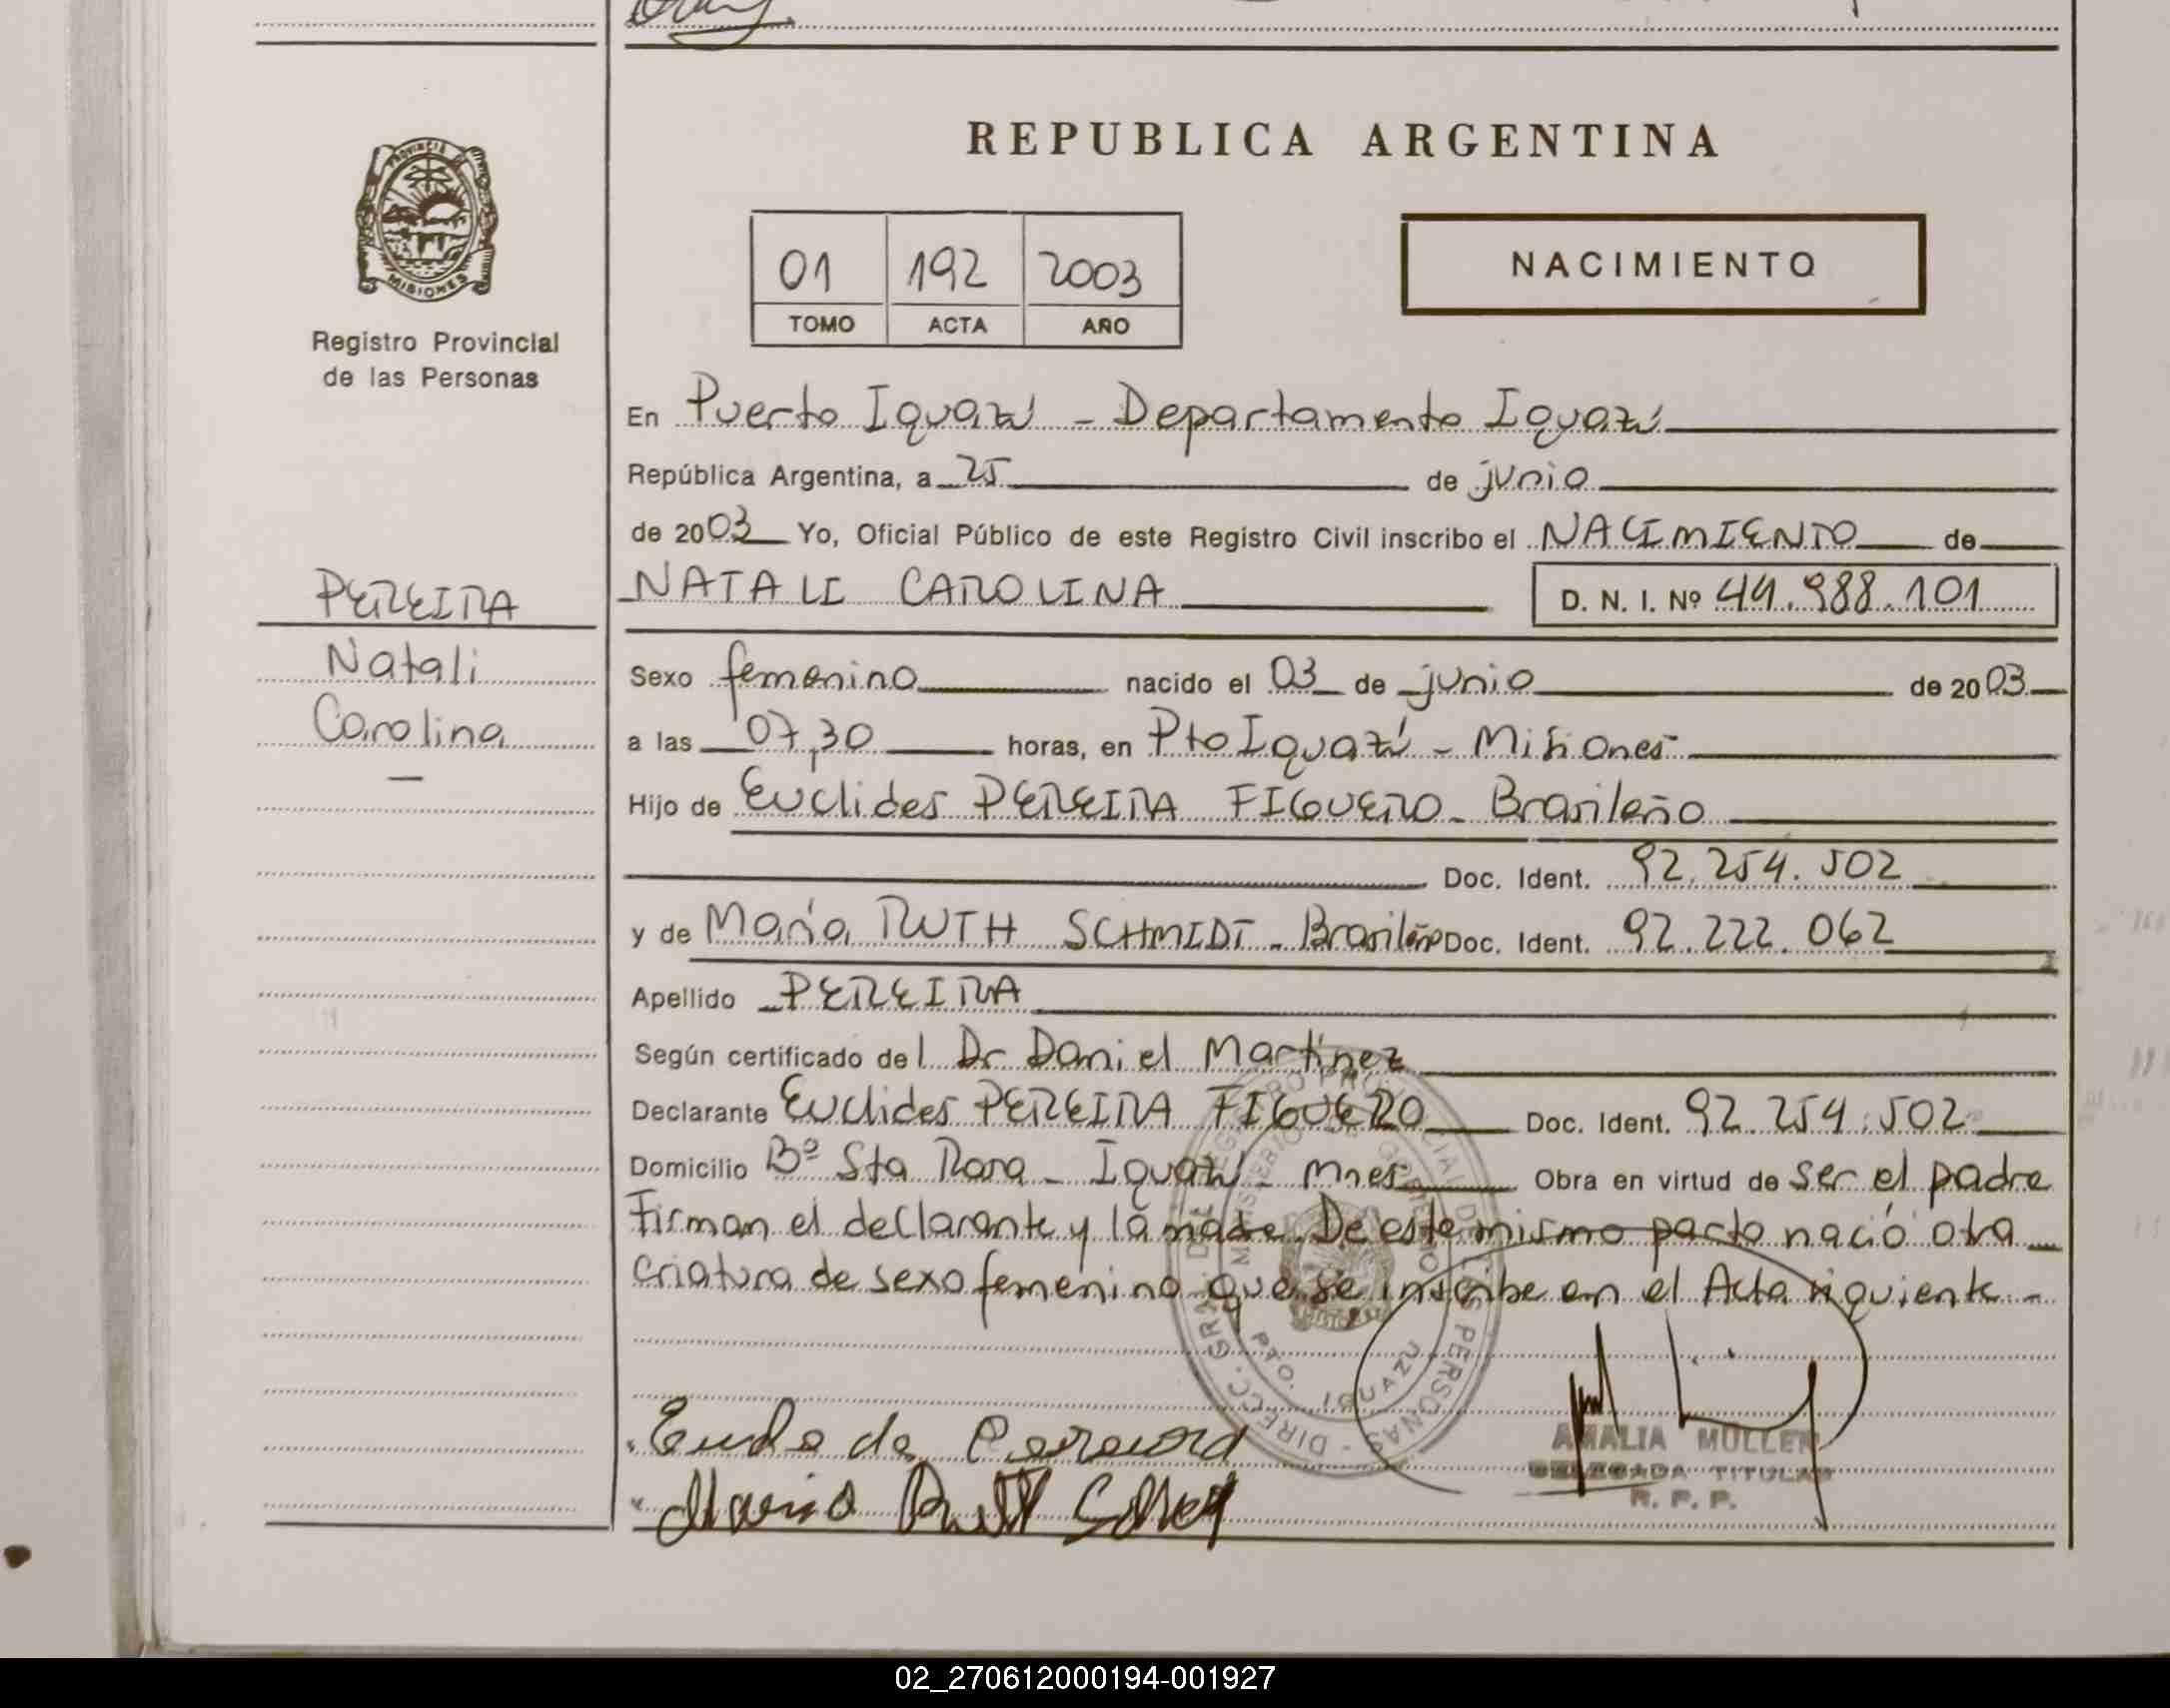 REPUBLICA ARGENTINA
PROVINCIA DE
MISIONES
Registro Provincial
de las Personas
01 192 2003
TOMO ACTA AÑO
NACIMIENTO
En Puerto Iguazú - Departamento Iguazú
República Argentina, a 25 de junio
de 2003 Yo, Oficial Público de este Registro Civil inscribo el NACIMIENTO de
PEREIRA
Natali
Carolina
NATALI CAROLINA D. N. I. Nº 44.988.101
Sexo femenino nacido el 03 de junio de 2003
a las 07,30 horas, en Pto Iguazú - Misiones
Hijo de Euclides PEREIRA FIGUERO - Brasileño
Doc. Ident. 92.254.502
y de María RUTH SCHMIDT - Brasileña Doc. Ident. 92.222.062
Apellido PEREIRA
Según certificado del Dr Daniel Martínez
Declarante Euclides PEREIRA FIGUERO Doc. Ident. 92.254.502
Domicilio Bº Sta Rosa - Iguazú - Mnes Obra en virtud de ser el padre
Firman el declarante y la madre. De este mismo parto nació otra
criatura de sexo femenino que se inscribe en el Acta siguiente -
DIRECC. GRAL. DE REGISTRO PROVINCIAL DE LAS PERSONAS
MINISTERIO DE GOBIERNO
PTO. IGUAZU
AMALIA MULLER
DELEGADA TITULAR
R. P. P.
02_270612000194-001927